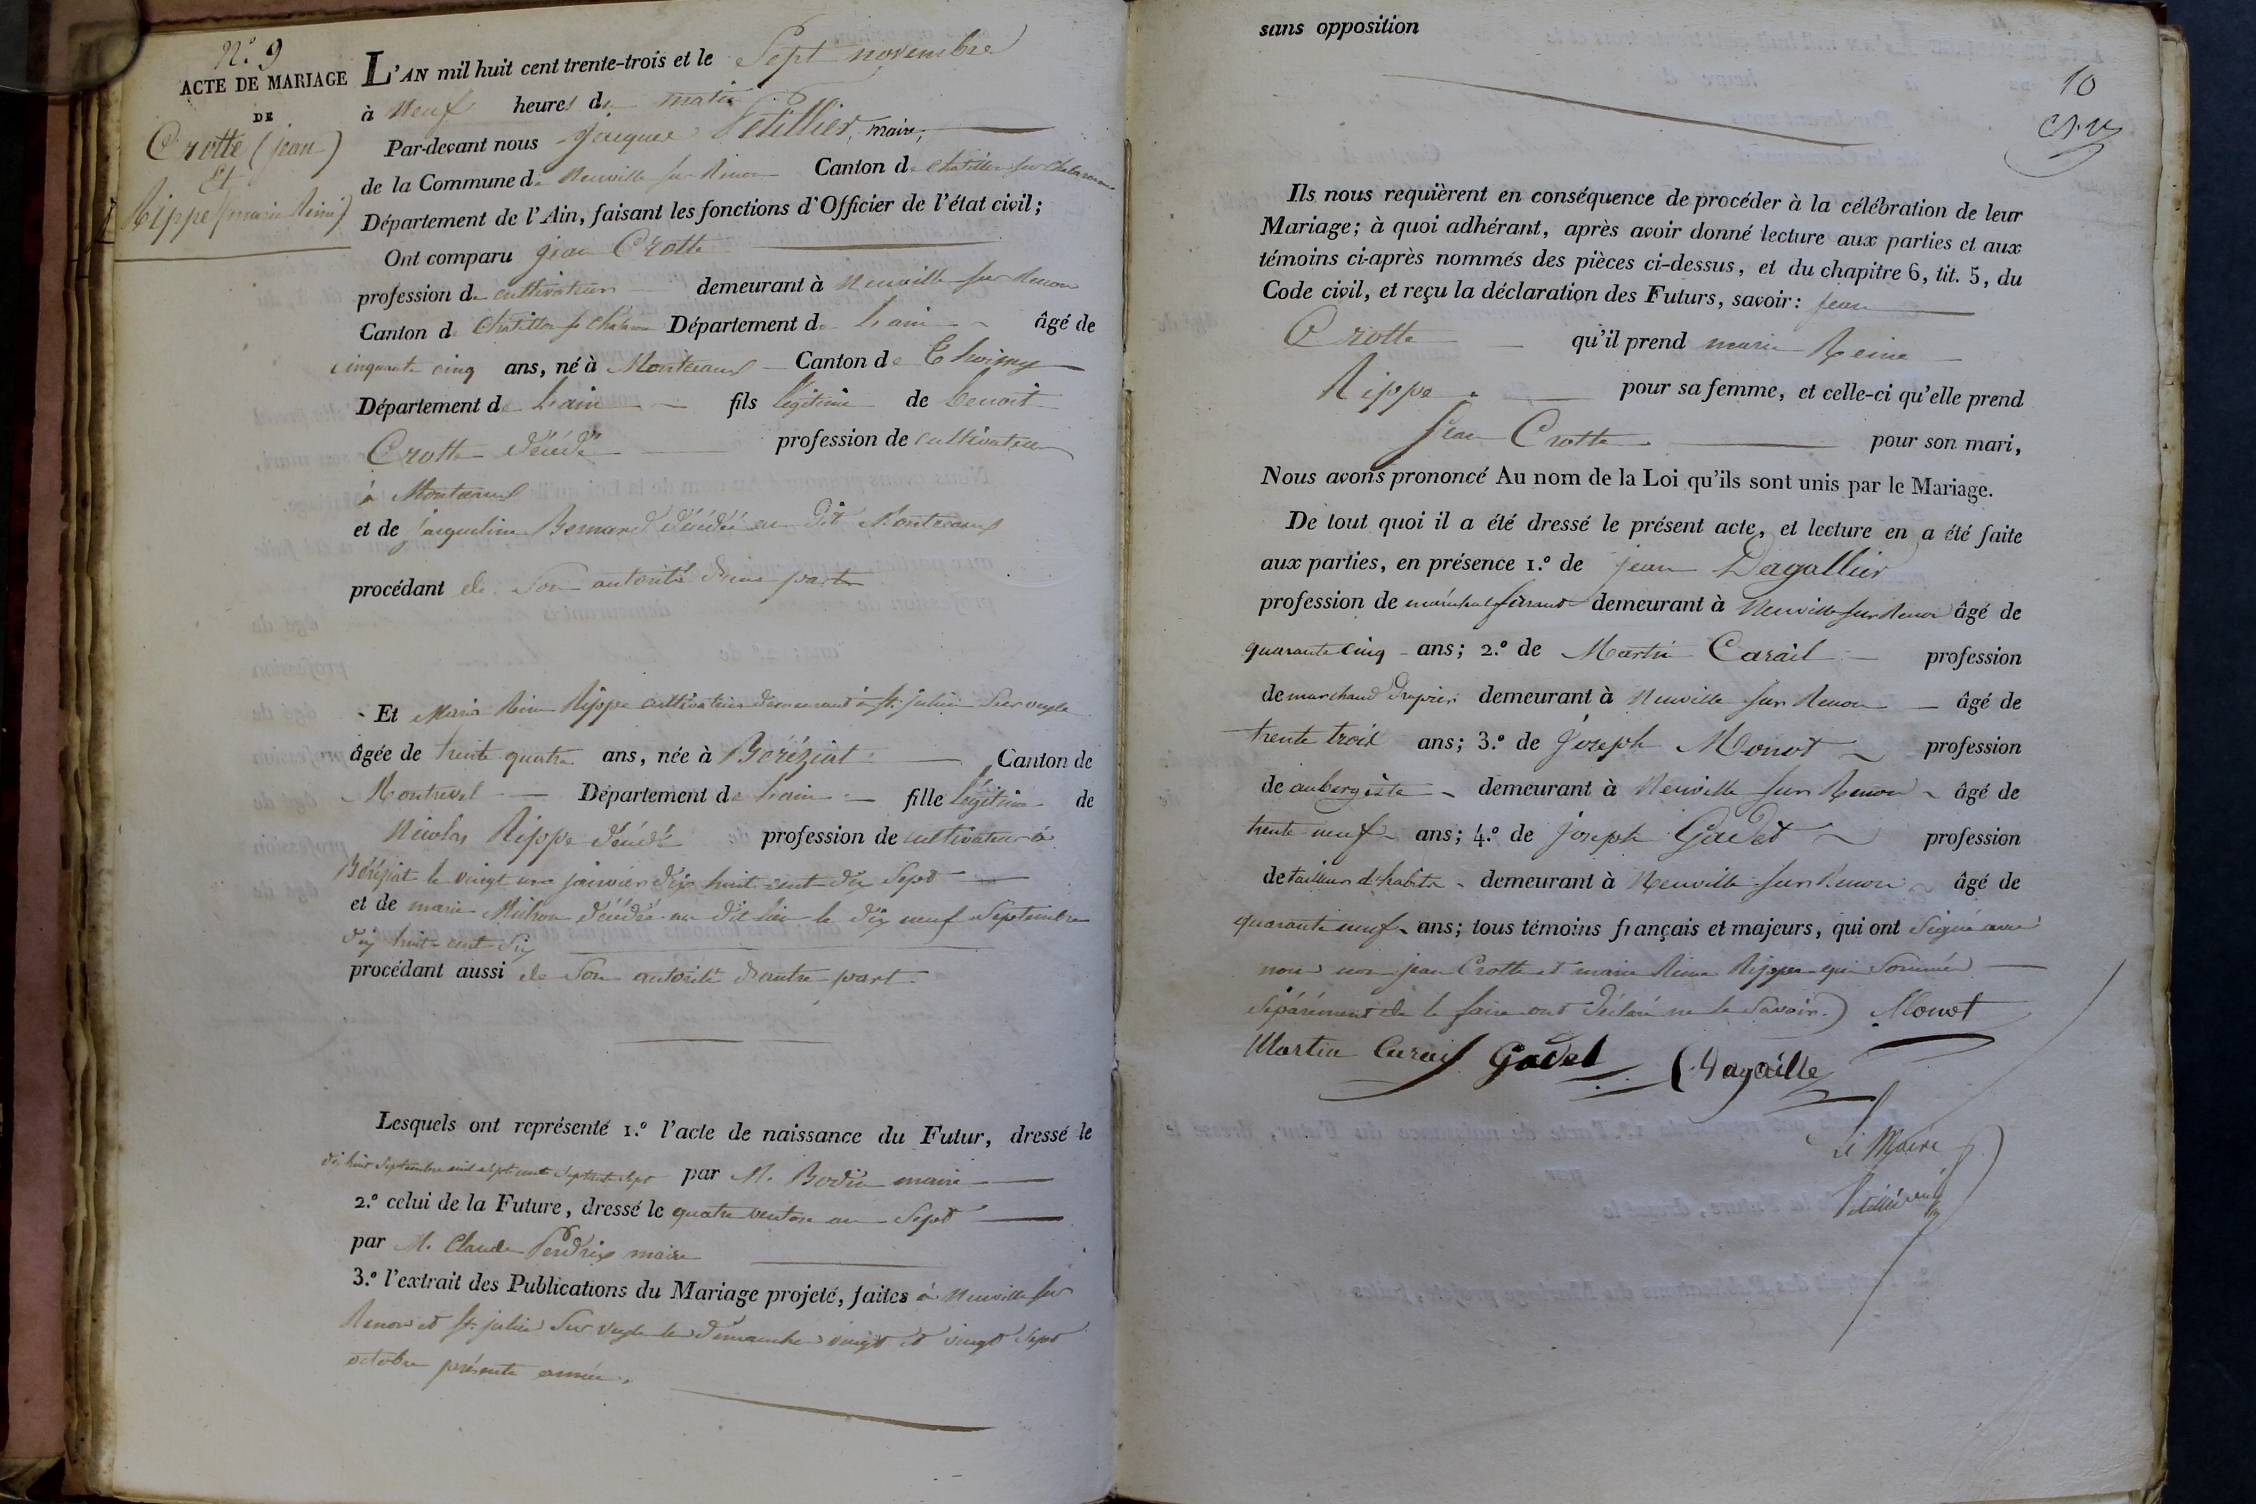 N.o 9
ACTE DE MARIAGE
DE
Crotte (jean)
Et
Rippe (marie Reine)
L'AN mil huit cent trente-trois et le Sept novembre
à Neuf heures du matin
Par-devant nous jacques maire,
de la Commune de Neuville sur Renon Canton de Chatillon sur Chalaronne
Département de l'Ain, faisant les fonctions d'Officier de l'état civil;
Ont comparu jean Crotte
profession de cultivateur demeurant à Neuville sur Renon
Canton de Chatillon s. Chalaronne Département de Lain âgé de
cinquante cinq ans, né à Monteaux Canton de Thoissey
Département de Lain fils légitime de Benoit
Crotte décédé profession de cultivateur
à Monteaux
et de jacqueline Bernard décédée au dit Monteaux
procédant de Son autorité d'une part
Et Marie Reine Rippe cultivatrice demeurant à St. julien Sur veyle
âgée de trente quatre ans, née à Béréziat Canton de
Montrevel Département de Lain fille légitime de
Nicolas Rippe décédé profession de cultivateur à
Béréziat le vingt un janvier dix huit cent dix Sept
et de marie Michon décédée au dit lieu le dix neuf Septembre
dix huit cent Six
procédant aussi de Son autorité d'autre part
Lesquels ont représenté 1.o l'acte de naissance du Futur, dressé le
dix huit Septembre mil sept cent Septante Sept par M. Bodin maire
2.o celui de la Future, dressé le quatre ventose an Sept
par M. Claude Perdrix maire
3.o l'extrait des Publications du Mariage projeté, faites à Neuville sur
Renon et St. julien Sur veyle les dimanches vingt et vingt Sept
octobre présente année.
sans opposition
10
Ils nous requièrent en conséquence de procéder à la célébration de leur
Mariage; à quoi adhérant, après avoir donné lecture aux parties et aux
témoins ci-après nommés des pièces ci-dessus, et du chapitre 6, tit. 5, du
Code civil, et reçu la déclaration des Futurs, savoir: jean
Crotte qu'il prend marie Reine
Rippe pour sa femme, et celle-ci qu'elle prend
Jean Crotte pour son mari,
Nous avons prononcé Au nom de la Loi qu'ils sont unis par le Mariage.
De tout quoi il a été dressé le présent acte, et lecture en a été faite
aux parties, en présence 1.o de jean Dagallier
profession de maréchal ferrant demeurant à Neuville sur Renon âgé de
quarante cinq ans; 2.o de Martin Carail profession
de marchand drapier demeurant à Neuville sur Renon âgé de
trente trois ans; 3.o de Joseph Monot profession
de aubergiste demeurant à Neuville sur Renon âgé de
trente neuf ans; 4.o de joseph Gadet profession
de tailleur d'habits demeurant à Neuville sur Renon âgé de
quarante neuf ans; tous témoins français et majeurs, qui ont Signé avec
nous non jean Crotte et marie Reine Rippe qui Sommés
Séparément de le faire ont déclaré ne le Savoir. Monot
Martin Carail Gadel Dagaille
Le Maire